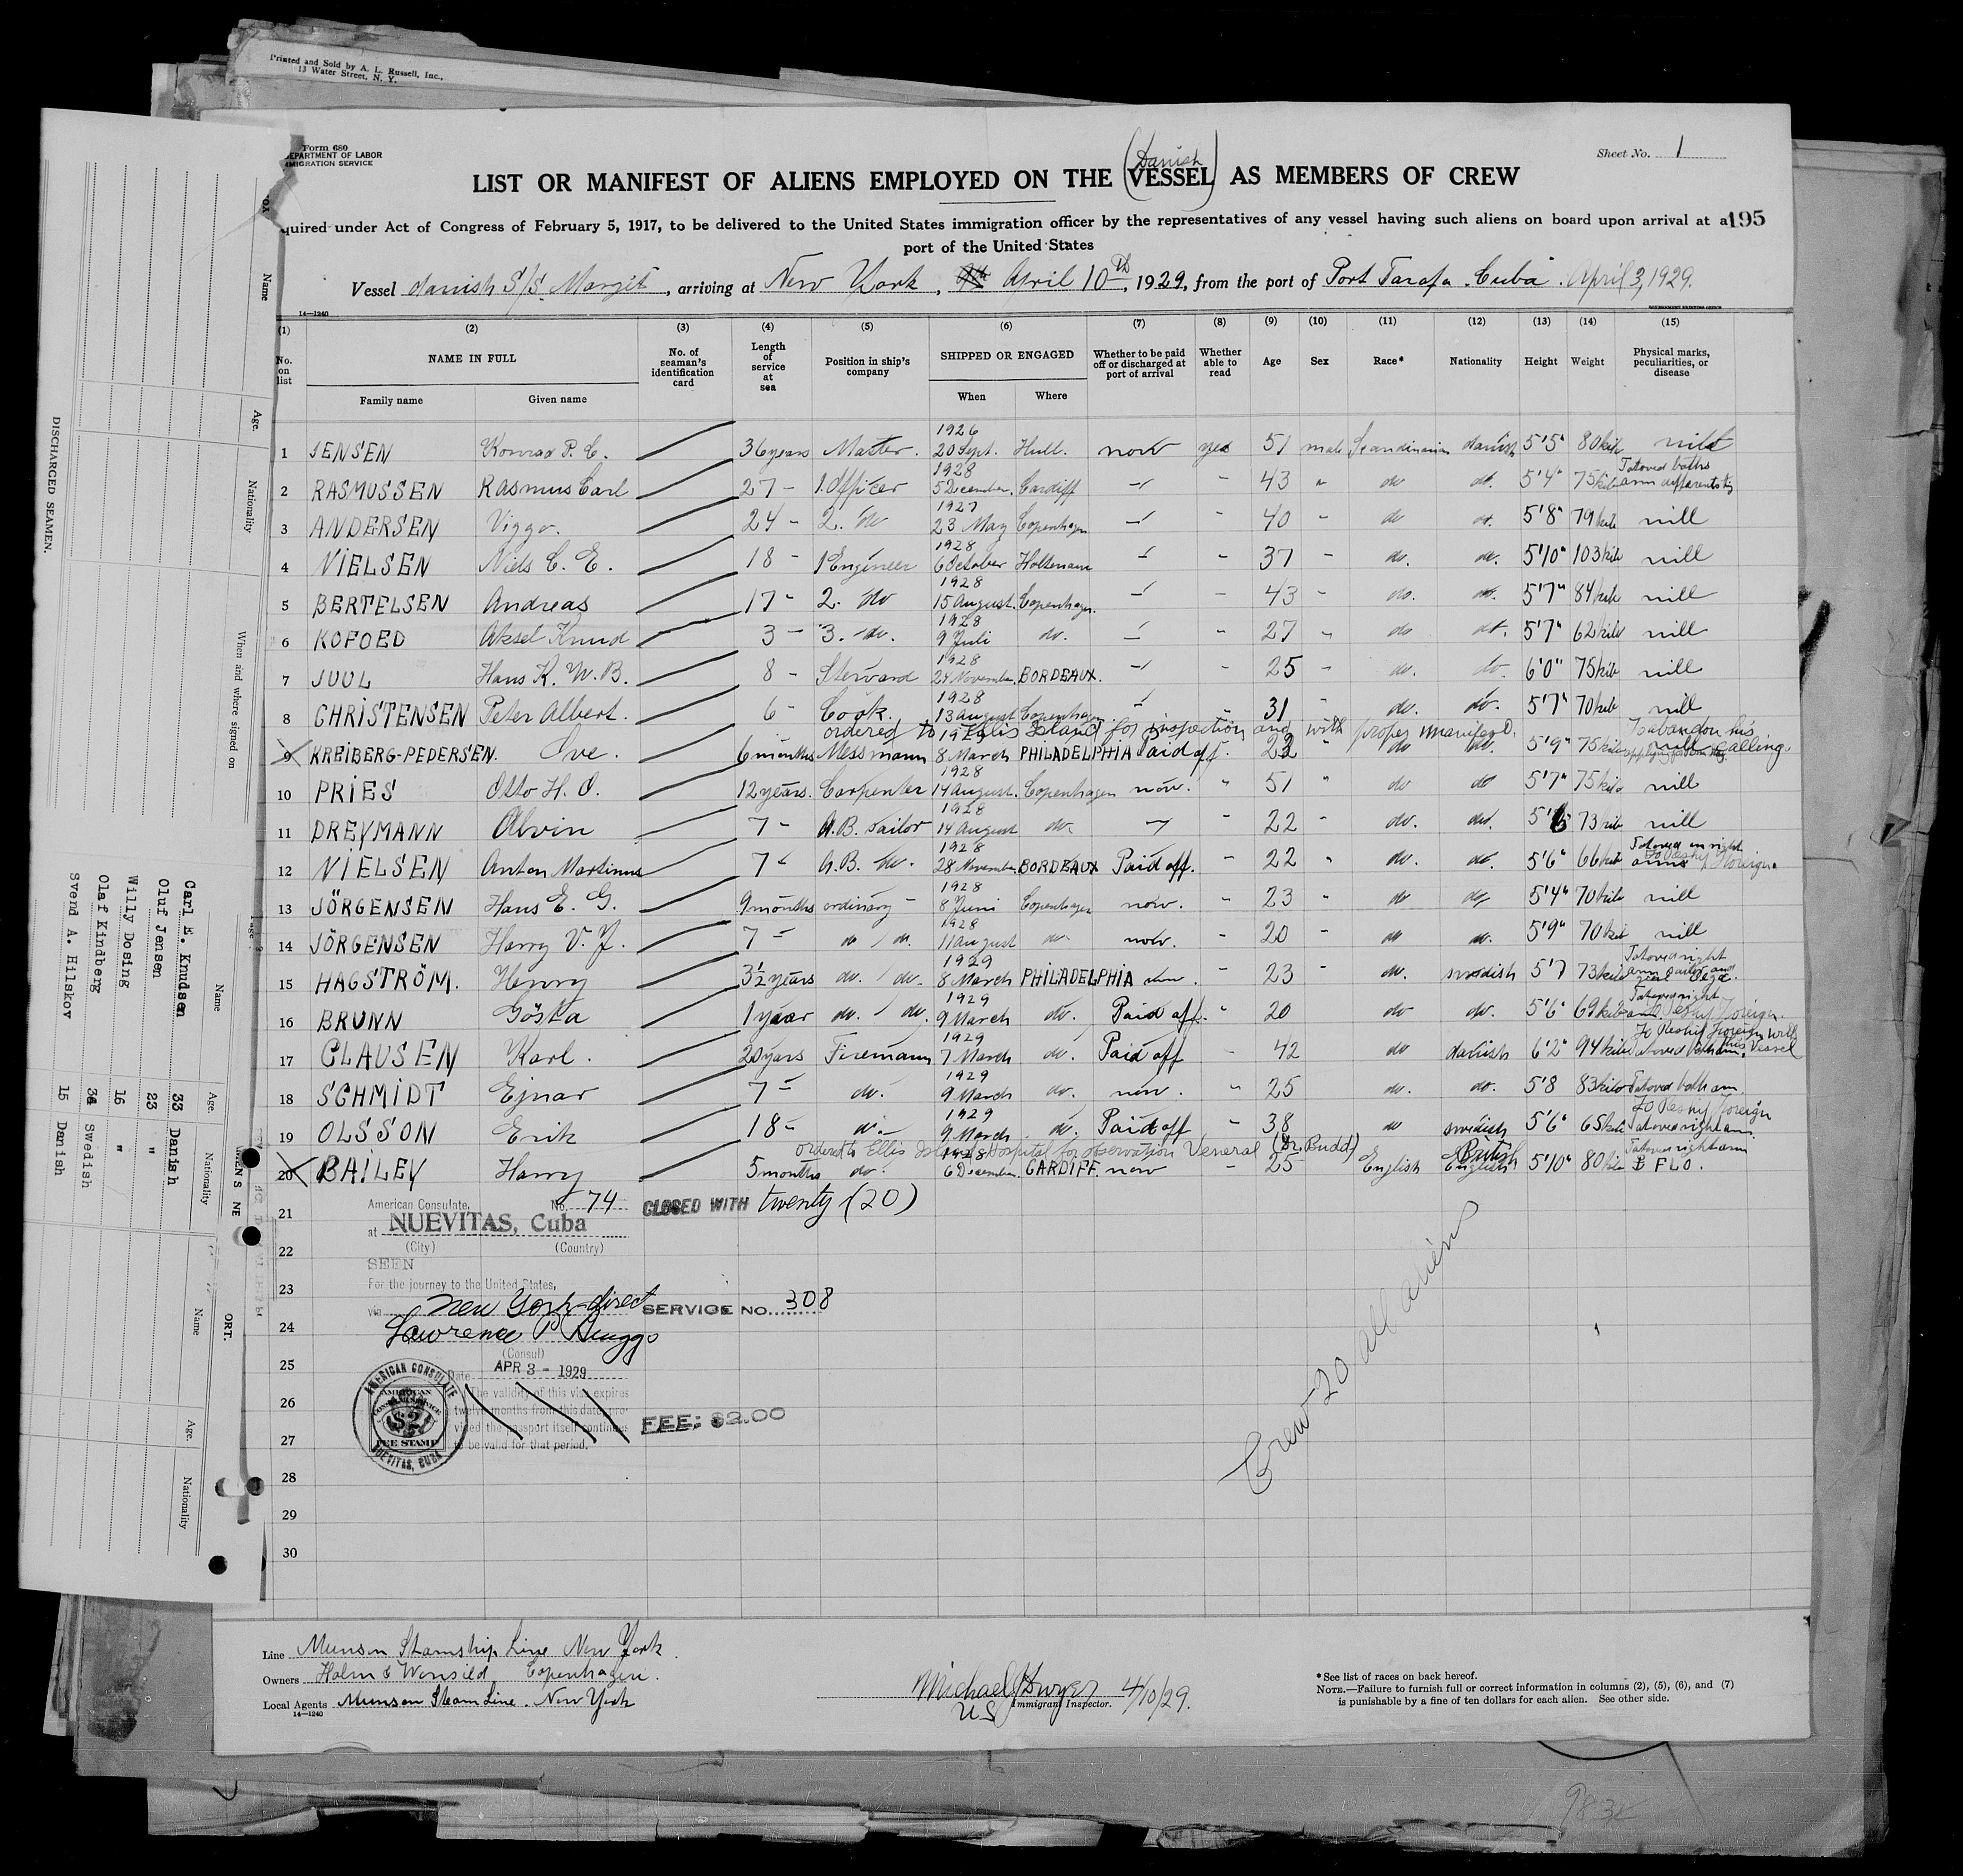 Printed and Sold by A. L. Russell, Inc.,
13 Water Street, N. Y.
Form 680
DEPARTMENT OF LABOR
IMMIGRATION SERVICE
Sheet No. 1
(Danish)
LIST OR MANIFEST OF ALIENS EMPLOYED ON THE VESSEL AS MEMBERS OF CREW
quired under Act of Congress of February 5, 1917, to be delivered to the United States immigration officer by the representatives of any vessel having such aliens on board upon arrival at a 195
port of the United States
Vessel danish S/S. Margit, arriving at New York, April 10th, 1929, from the port of Port Tarafa. Cuba. April 3, 1929.
14—1240
(1) (2) (3) (4) (5) (6) (7) (8) (9) (10) (11) (12) (13) (14) (15)
No. on list
NAME IN FULL
Family name
Given name
No. of seaman's identification card
Length of service at sea
Position in ship's company
SHIPPED OR ENGAGED
When
Where
Whether to be paid off or discharged at port of arrival
Whether able to read
Age
Sex
Race*
Nationality
Height
Weight
Physical marks, peculiarities, or disease
1 JENSEN Konrad P. C. 36 years Master. 1926 20 Sept. Hull. now yes 51 male Scandinavian danish 5'5" 80 kilo nill
2 RASMUSSEN Rasmus Carl 27 - 1. Officer 1928 5 December. Cardiff - 43 " do do. 5'4" 75 kilo
3 ANDERSEN Viggo. 24 - 2. do 1927 23 May Copenhagen - 40 - do do. 5'8" 79 kilo nill
4 NIELSEN Niels C. E. 18 - 1 Engineer 1928 6 October Holtenau - 37 - do. do. 5'10" 103 kilo nill
5 BERTELSEN Andreas 17 - 2. do 1928 15 August. Copenhagen. - 43 - do. do. 5'7" 84 kilo nill
6 KOFOED Aksel Knud 3 - 3. do. 1928 9 Juli do. - 27 - do do. 5'7" 62 kilo nill
7 JUUL Hans K. W. B. 8 - Steward 1928 24 November. BORDEAUX. - 25 - do. do 6'0" 75 kilo nill
8 CHRISTENSEN Peter Albert. 6 - Cook. 1928 13 August Copenhagen. - 31 - do. do. 5'7" 70 kilo nill
ordered to Ellis Island for inspection and with proper manifest. To abandon his calling.
9 KREIBERG-PEDERSEN. Ove. 6 months Messmann 8 March PHILADELPHIA Paid off. 22 " do do. 5'9" 75 kilo nill
10 PRIES Otto H. O. 12 years. Carpenter 1928 14 August. Copenhagen now. " 51 " do do 5'7" 75 kilo nill
11 DREYMANN Alvin 7 - A.B. sailor 1928 14 August do. - 22 - do. do. 73 kilo nill
12 NIELSEN Anton Martinus 7 - A.B. do. 1928 28 November BORDEAUX Paid off. - 22 " do. do. 5'6" 66 kilo Tatoved on right arm
13 JÖRGENSEN Hans E. G. 9 months ordinary - 1928 8 Juni Copenhagen now. - 23 - do do 5'4" 70 kilo nill
14 JÖRGENSEN Harry V. 7 - do / do. 1928 11 August do. now. - 20 - do do. 5'9" 70 kilo nill
15 HAGSTRÖM. Henry 3½ years do. / do. 1929 8 March PHILADELPHIA - 23 - do. swedish 5'7 73 kilo Tatoved right arm
16 BRUNN Gösta 1 year do. / do. 1929 9 March do. Paid off. " 20 do do. 5'6" 69 kilo Tatoved right arm To Reship Foreign.
17 CLAUSEN Karl. 20 years Firemann 1929 7 March do. Paid off - 42 do danish 6'2" 94 kilo To Reship foreign with this Vessel
18 SCHMIDT Ejnar 7 - do. 1929 9 March do. now. " 25 do. do. 5'8 83 kilo Tatoved both arm.
19 OLSSON Erik 18 - do. 1929 9 March do. Paid off " 38 do swedish 5'6" 65 kilo Tatoved right arm. To Reship Foreign
ordered to Ellis Island Hospital for observation Veneral (Dr. Rudd)
20 BAILEY Harry 5 months do. 1928 6 December. CARDIFF. now - 25 English English British 5'10" 80 kilo Tatoved right arm B FLO.
21
22
23
24
25
26
27
28
29
30
American Consulate, No. 74
CLOSED WITH twenty (20)
at NUEVITAS, Cuba
(City) (Country)
SEEN
For the journey to the United States,
via New York-direct
SERVICE NO. 308
Lawrence P. Briggs
(Consul)
Date APR 3 - 1929
The validity of this visa expires
twelve months from this date, pro-
vided the passport itself continues
to be valid for that period.
FEE: $2.00
AMERICAN CONSULATE
NUEVITAS, CUBA
AMERICAN
CONSULAR SERVICE
$2
FEE STAMP
Crew-20 all aliens
Line Munson Steamship Line New York.
Owners Holm & Wonsild Copenhagen.
Local Agents Munson Steam Line. New York
14—1240
Michael J Dwyer 4/10/29.
US Immigrant Inspector.
*See list of races on back hereof.
NOTE.—Failure to furnish full or correct information in columns (2), (5), (6), and (7)
is punishable by a fine of ten dollars for each alien. See other side.
983
DISCHARGED SEAMEN.
Name
Age.
Nationality
When and where signed on
Name
Age.
Nationality
Name
Age.
Nationality
Carl E. Knudsen 33 Danish
Oluf Jensen 23 "
Willy Dosing 16 "
Olaf Kindberg 34 Swedish
Svend A. Hilskov 15 Danish
ORT.